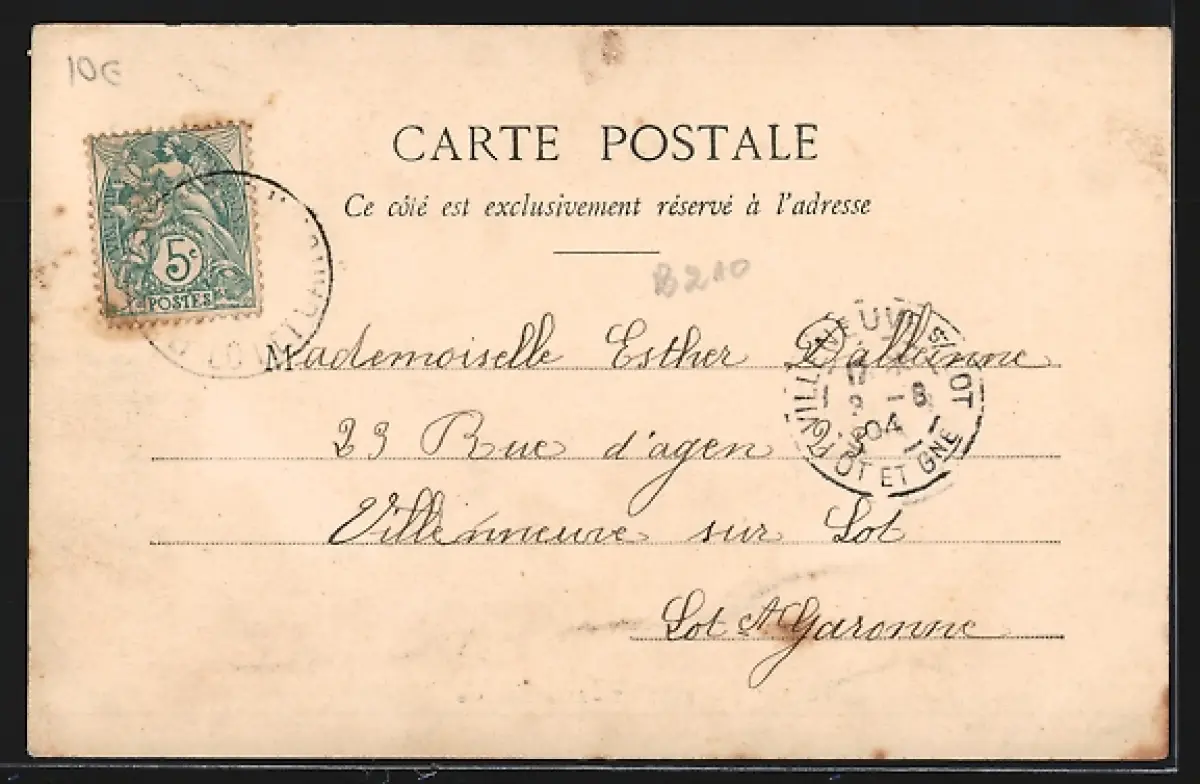 10€
CARTE POSTALE
Ce côté est exclusivement réservé à l'adresse
5c
POSTES
B210
Mademoiselle Esther
23 Rue d'agen
Villenneuve sur Lot
Lot et Garonne
VILLENEUVE S. LOT
-8
04
LOT ET GNE